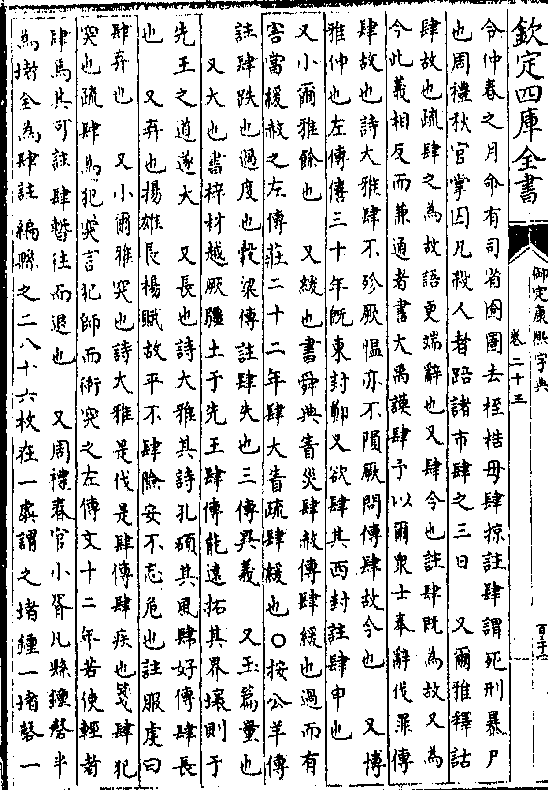 欽定四庫全書
御定康熙字典
卷二十三
令仲春之月命有司省囹圄去桎梏毋肆掠註肆謂死刑暴尸
也周禮秋官掌囚凡殺人者踣諸市肆之三日 又爾雅釋詁
肆故也疏肆之為故語更端辭也又肆今也註肆既為故又為
今此義相反而兼通者書大禹謨肆予以爾衆士奉辭伐罪傳
肆故也詩大雅肆不殄厥愠亦不隕厥問傳肆故今也 又博
雅伸也左傳僖三十年既東封鄭又欲肆其西封註肆申也
又小爾雅餘也 又緩也書舜典眚災肆赦傳肆緩也過而有
害當緩赦之左傳莊二十二年肆大眚疏肆緩也○按公羊傳
註肆跌也過度也穀梁傳註肆失也三傳異義 又玉篇量也
又大也書梓材越厥疆土于先王肆傳能遠拓其界壤則于
先王之道遂大 又長也詩大雅其詩孔碩其風肆好傳肆長
也 又弃也揚雄長楊賦故平不肆險安不忘危也註服虔曰
肆弃也 又小爾雅突也詩大雅是伐是肆傳肆疾也箋肆犯
突也疏肆為犯突言犯師而衝突之左傳文十二年若使輕者
肆焉其可註肆暫往而退也 又周禮春官小胥凡縣鐘磬半
為堵全為肆註編縣之二八十六枚在一虡謂之堵鐘一堵磬一